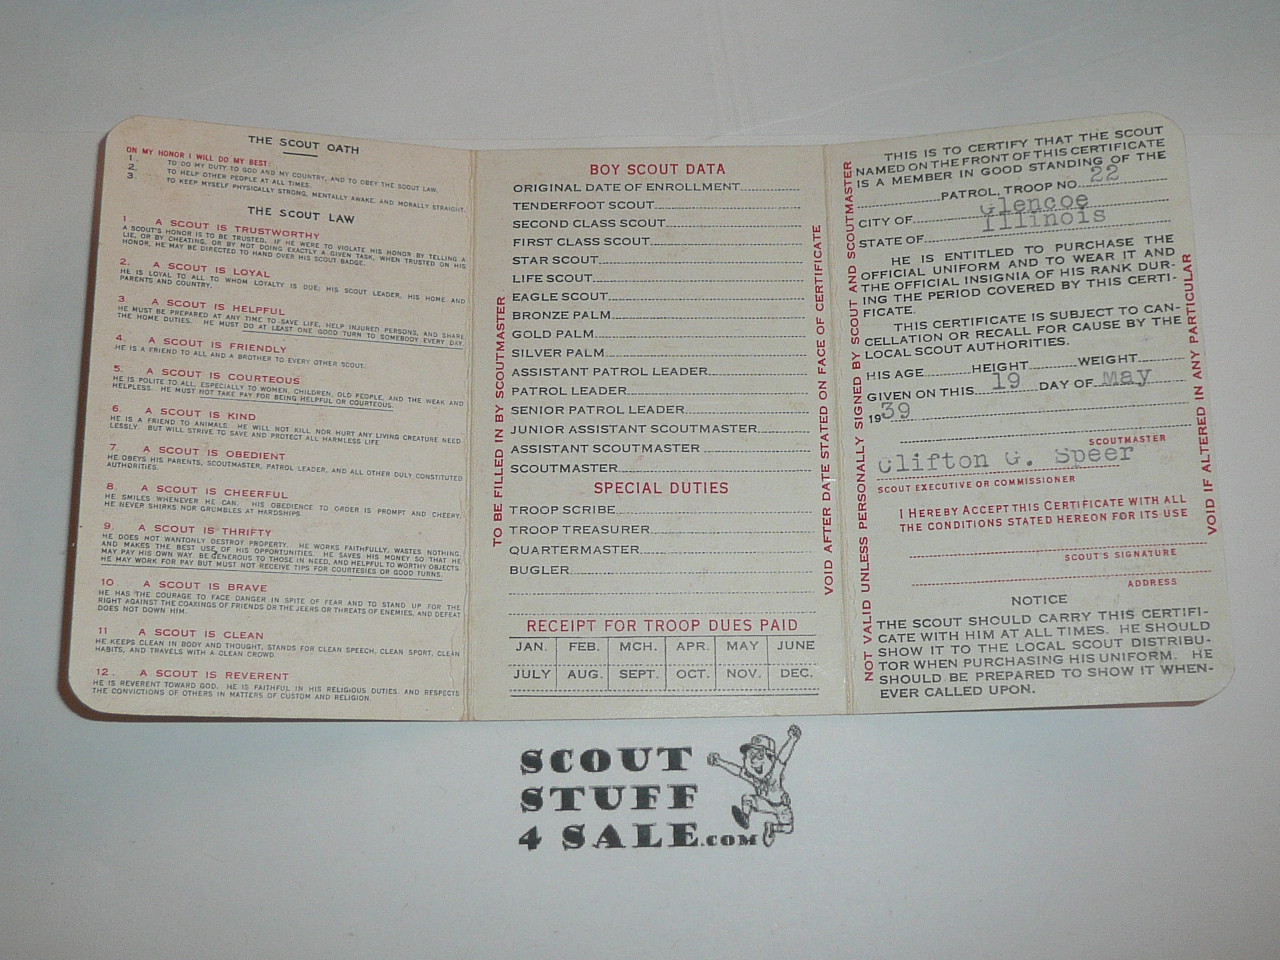 THE SCOUT OATH
ON MY HONOR I WILL DO MY BEST:
1. TO DO MY DUTY TO GOD AND MY COUNTRY, AND TO OBEY THE SCOUT LAW.
2. TO HELP OTHER PEOPLE AT ALL TIMES.
3. TO KEEP MYSELF PHYSICALLY STRONG, MENTALLY AWAKE, AND MORALLY STRAIGHT.
THE SCOUT LAW
1. A SCOUT IS TRUSTWORTHY
A SCOUT'S HONOR IS TO BE TRUSTED. IF HE WERE TO VIOLATE HIS HONOR BY TELLING A
LIE, OR BY CHEATING, OR BY NOT DOING EXACTLY A GIVEN TASK, WHEN TRUSTED ON HIS
HONOR, HE MAY BE DIRECTED TO HAND OVER HIS SCOUT BADGE.
2. A SCOUT IS LOYAL
HE IS LOYAL TO ALL TO WHOM LOYALTY IS DUE; HIS SCOUT LEADER, HIS HOME AND
PARENTS AND COUNTRY.
3. A SCOUT IS HELPFUL
HE MUST BE PREPARED AT ANY TIME TO SAVE LIFE, HELP INJURED PERSONS, AND SHARE
THE HOME DUTIES. HE MUST DO AT LEAST ONE GOOD TURN TO SOMEBODY EVERY DAY.
4. A SCOUT IS FRIENDLY
HE IS A FRIEND TO ALL AND A BROTHER TO EVERY OTHER SCOUT.
5. A SCOUT IS COURTEOUS
HE IS POLITE TO ALL, ESPECIALLY TO WOMEN, CHILDREN, OLD PEOPLE, AND THE WEAK AND
HELPLESS. HE MUST NOT TAKE PAY FOR BEING HELPFUL OR COURTEOUS.
6. A SCOUT IS KIND
HE IS A FRIEND TO ANIMALS. HE WILL NOT KILL NOR HURT ANY LIVING CREATURE NEED-
LESSLY, BUT WILL STRIVE TO SAVE AND PROTECT ALL HARMLESS LIFE
7. A SCOUT IS OBEDIENT
HE OBEYS HIS PARENTS, SCOUTMASTER, PATROL LEADER, AND ALL OTHER DULY CONSTITUTED
AUTHORITIES.
8. A SCOUT IS CHEERFUL
HE SMILES WHENEVER HE CAN. HIS OBEDIENCE TO ORDER IS PROMPT AND CHEERY.
HE NEVER SHIRKS NOR GRUMBLES AT HARDSHIPS.
9. A SCOUT IS THRIFTY
HE DOES NOT WANTONLY DESTROY PROPERTY. HE WORKS FAITHFULLY, WASTES NOTHING,
AND MAKES THE BEST USE OF HIS OPPORTUNITIES. HE SAVES HIS MONEY SO THAT HE
MAY PAY HIS OWN WAY, BE GENEROUS TO THOSE IN NEED, AND HELPFUL TO WORTHY OBJECTS.
HE MAY WORK FOR PAY BUT MUST NOT RECEIVE TIPS FOR COURTESIES OR GOOD TURNS.
10. A SCOUT IS BRAVE
HE HAS THE COURAGE TO FACE DANGER IN SPITE OF FEAR AND TO STAND UP FOR THE
RIGHT AGAINST THE COAXINGS OF FRIENDS OR THE JEERS OR THREATS OF ENEMIES, AND DEFEAT
DOES NOT DOWN HIM.
11 A SCOUT IS CLEAN
HE KEEPS CLEAN IN BODY AND THOUGHT, STANDS FOR CLEAN SPEECH, CLEAN SPORT, CLEAN
HABITS, AND TRAVELS WITH A CLEAN CROWD
12. A SCOUT IS REVERENT
HE IS REVERENT TOWARD GOD. HE IS FAITHFUL IN HIS RELIGIOUS DUTIES AND RESPECTS
THE CONVICTIONS OF OTHERS IN MATTERS OF CUSTOM AND RELIGION.
TO BE FILLED IN BY SCOUTMASTER
BOY SCOUT DATA
ORIGINAL DATE OF ENROLLMENT
TENDERFOOT SCOUT
SECOND CLASS SCOUT
FIRST CLASS SCOUT
STAR SCOUT
LIFE SCOUT
EAGLE SCOUT
BRONZE PALM
GOLD PALM
SILVER PALM
ASSISTANT PATROL LEADER
PATROL LEADER
SENIOR PATROL LEADER
JUNIOR ASSISTANT SCOUTMASTER
ASSISTANT SCOUTMASTER
SCOUTMASTER
SPECIAL DUTIES
TROOP SCRIBE
TROOP TREASURER
QUARTERMASTER
BUGLER
RECEIPT FOR TROOP DUES PAID
JAN. FEB. MCH. APR. MAY JUNE
JULY AUG. SEPT. OCT. NOV. DEC.
VOID AFTER DATE STATED ON FACE OF CERTIFICATE
NOT VALID UNLESS PERSONALLY SIGNED BY SCOUT AND SCOUTMASTER
THIS IS TO CERTIFY THAT THE SCOUT
NAMED ON THE FRONT OF THIS CERTIFICATE
IS A MEMBER IN GOOD STANDING OF THE
PATROL, TROOP NO. 22
CITY OF Glencoe
STATE OF Illinois
HE IS ENTITLED TO PURCHASE THE
OFFICIAL UNIFORM AND TO WEAR IT AND
THE OFFICIAL INSIGNIA OF HIS RANK DUR-
ING THE PERIOD COVERED BY THIS CERTI-
FICATE.
THIS CERTIFICATE IS SUBJECT TO CAN-
CELLATION OR RECALL FOR CAUSE BY THE
LOCAL SCOUT AUTHORITIES.
HIS AGE HEIGHT WEIGHT
GIVEN ON THIS 19 DAY OF May
1939
SCOUTMASTER
Clifton G. Speer
SCOUT EXECUTIVE OR COMMISSIONER
I HEREBY ACCEPT THIS CERTIFICATE WITH ALL
THE CONDITIONS STATED HEREON FOR ITS USE
SCOUT'S SIGNATURE
ADDRESS
NOTICE
THE SCOUT SHOULD CARRY THIS CERTIFI-
CATE WITH HIM AT ALL TIMES. HE SHOULD
SHOW IT TO THE LOCAL SCOUT DISTRIBU-
TOR WHEN PURCHASING HIS UNIFORM. HE
SHOULD BE PREPARED TO SHOW IT WHEN-
EVER CALLED UPON.
VOID IF ALTERED IN ANY PARTICULAR
SCOUT
STUFF
4 SALE.COM